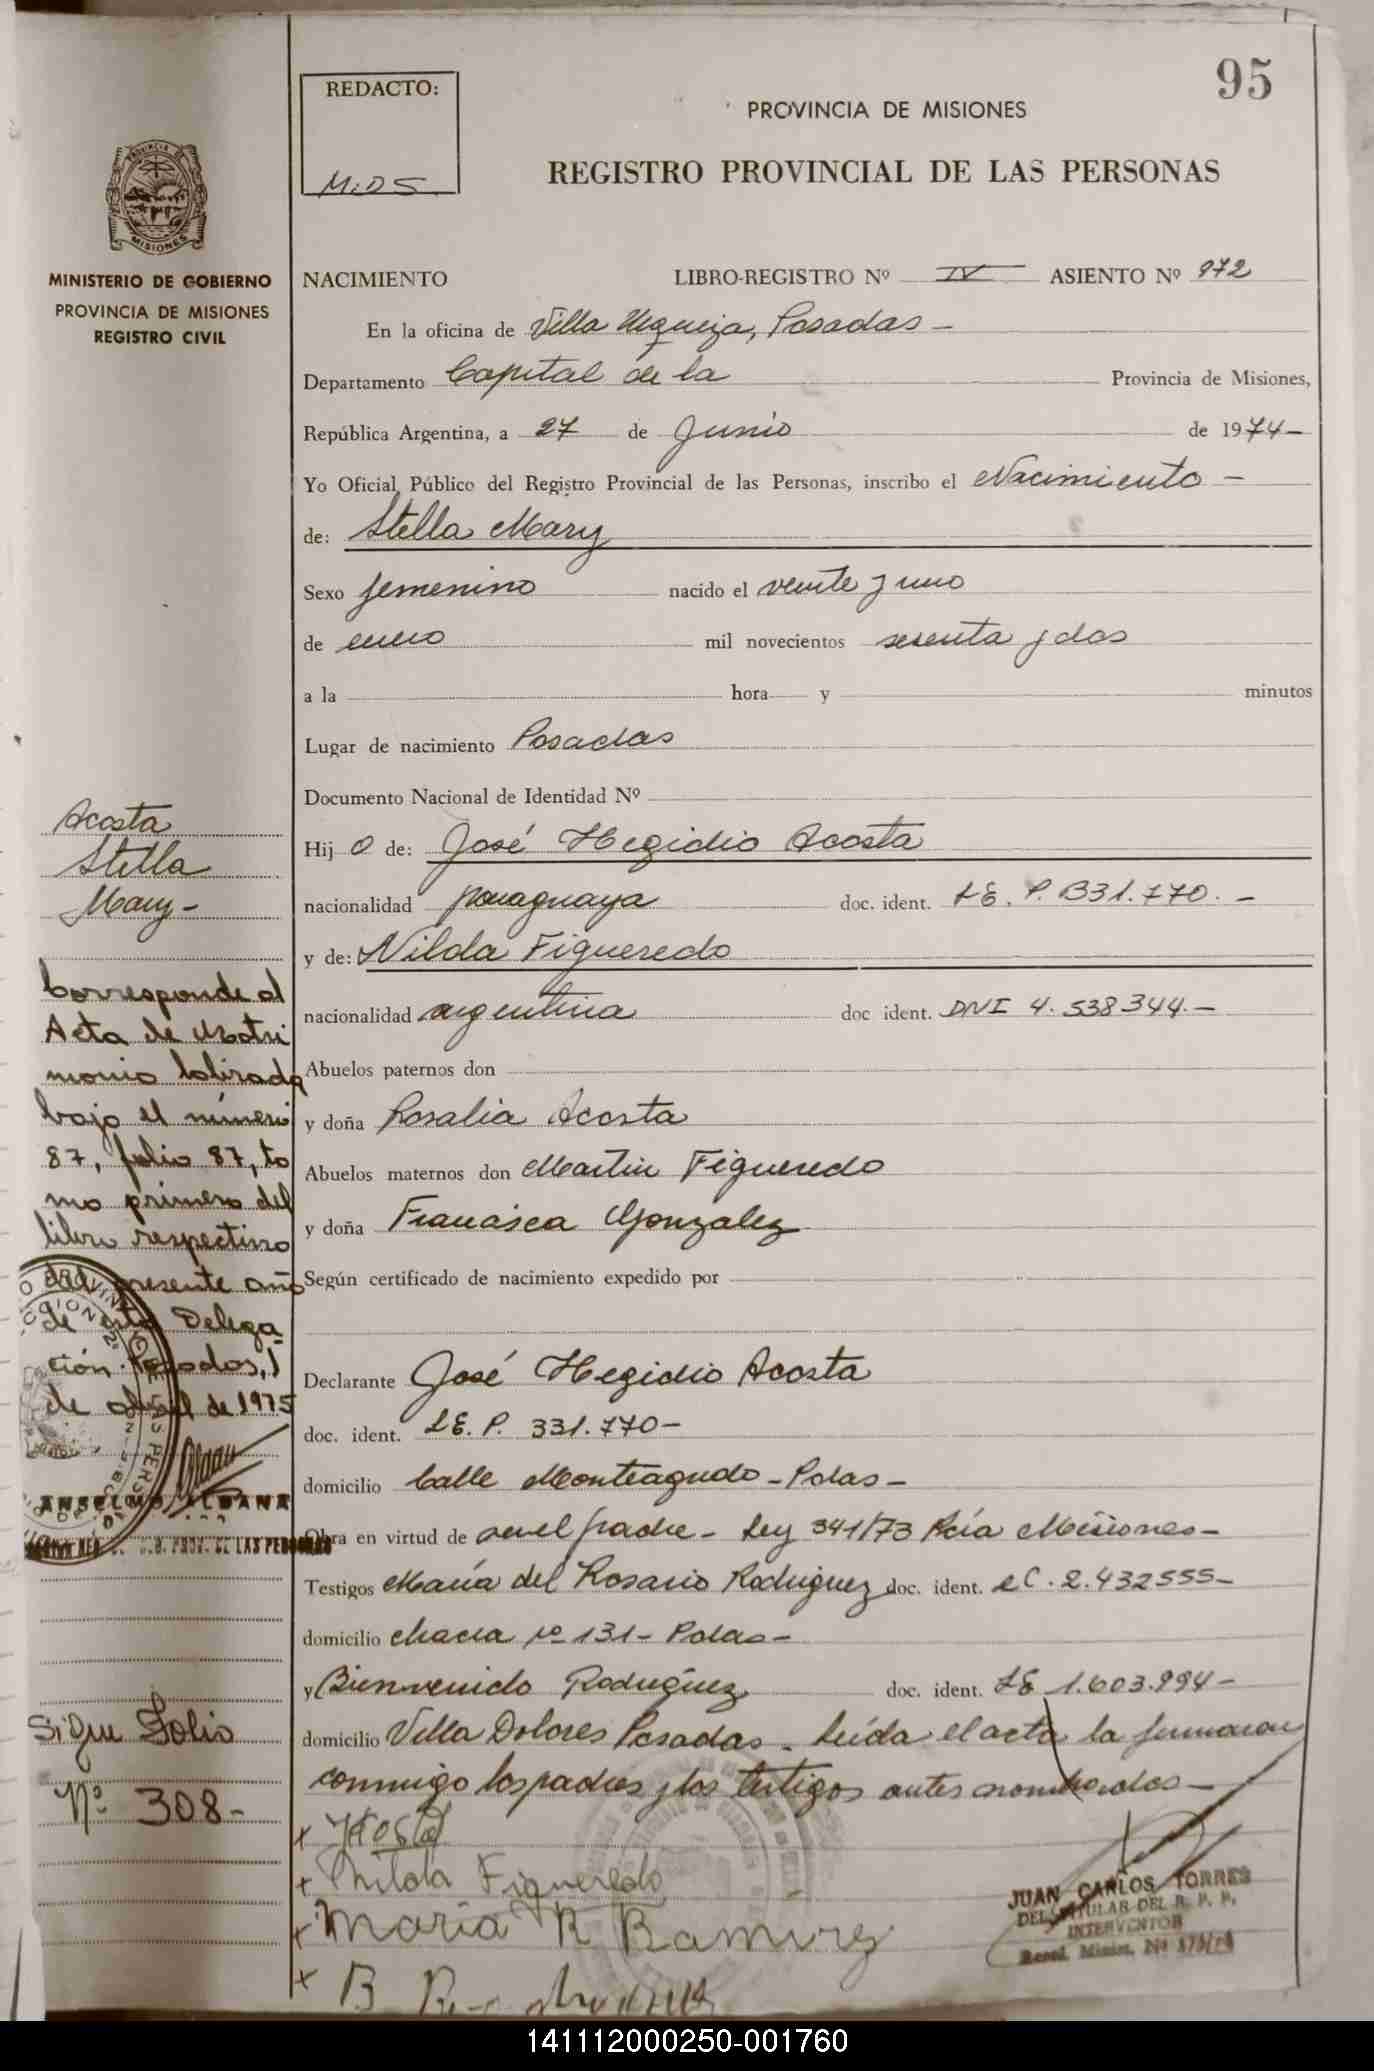 95
REDACTO:
M.D.S.
PROVINCIA DE MISIONES
REGISTRO PROVINCIAL DE LAS PERSONAS
PROVINCIA DE
MISIONES
MINISTERIO DE GOBIERNO
PROVINCIA DE MISIONES
REGISTRO CIVIL
NACIMIENTO LIBRO-REGISTRO Nº IV ASIENTO Nº 972
En la oficina de Villa Urquiza, Posadas -
Departamento Capital de la Provincia de Misiones,
República Argentina, a 27 de Junio de 1974-
Yo Oficial Público del Registro Provincial de las Personas, inscribo el Nacimiento -
de: Stella Mary
Sexo femenino nacido el veinte y uno
de enero mil novecientos sesenta y dos
a la hora y minutos
Lugar de nacimiento Posadas
Documento Nacional de Identidad Nº
Hij o de: José Hegidio Acosta
nacionalidad paraguaya doc. ident. LE. P. B31.770. -
y de: Nilda Figueredo
nacionalidad argentina doc ident. DNI 4.538344.-
Abuelos paternos don
y doña Rosalia Acosta
Abuelos maternos don Martin Figueredo
y doña Francisca Gonzalez
Según certificado de nacimiento expedido por
Declarante José Hegidio Acosta
doc. ident. LE. P. 331.770-
domicilio Calle Monteagudo - Pdas -
Obra en virtud de ser el padre - Ley 341/73 Pcia Misiones -
Testigos María del Rosario Rodriguez doc. ident. LC. 2.432555-
domicilio chacra nº 131 - Pdas -
y Bienvenido Rodriguez doc. ident. LE 1.603.994-
domicilio Villa Dolores Posadas - Leída el acta la firmaron
conmigo los padres y los testigos antes nombrados -
x Acosta
x Nilda Figueredo
x Maria R Ramirez
x B
JUAN CARLOS TORRES
DEL. TITULAR DEL R. P. P.
INTERVENTOR
Resol. Minist. Nº
Acosta
Stella
Mary-
Corresponde al
Acta de Matri
monio labrada
bajo el número
87, folio 87, to
mo primero del
libro respectivo
del presente año
de esta Delega
ción. Posadas, 1
de abril de 1975
ANSELMO ALDANA
Sigue Folio
Nº 308-
141112000250-001760